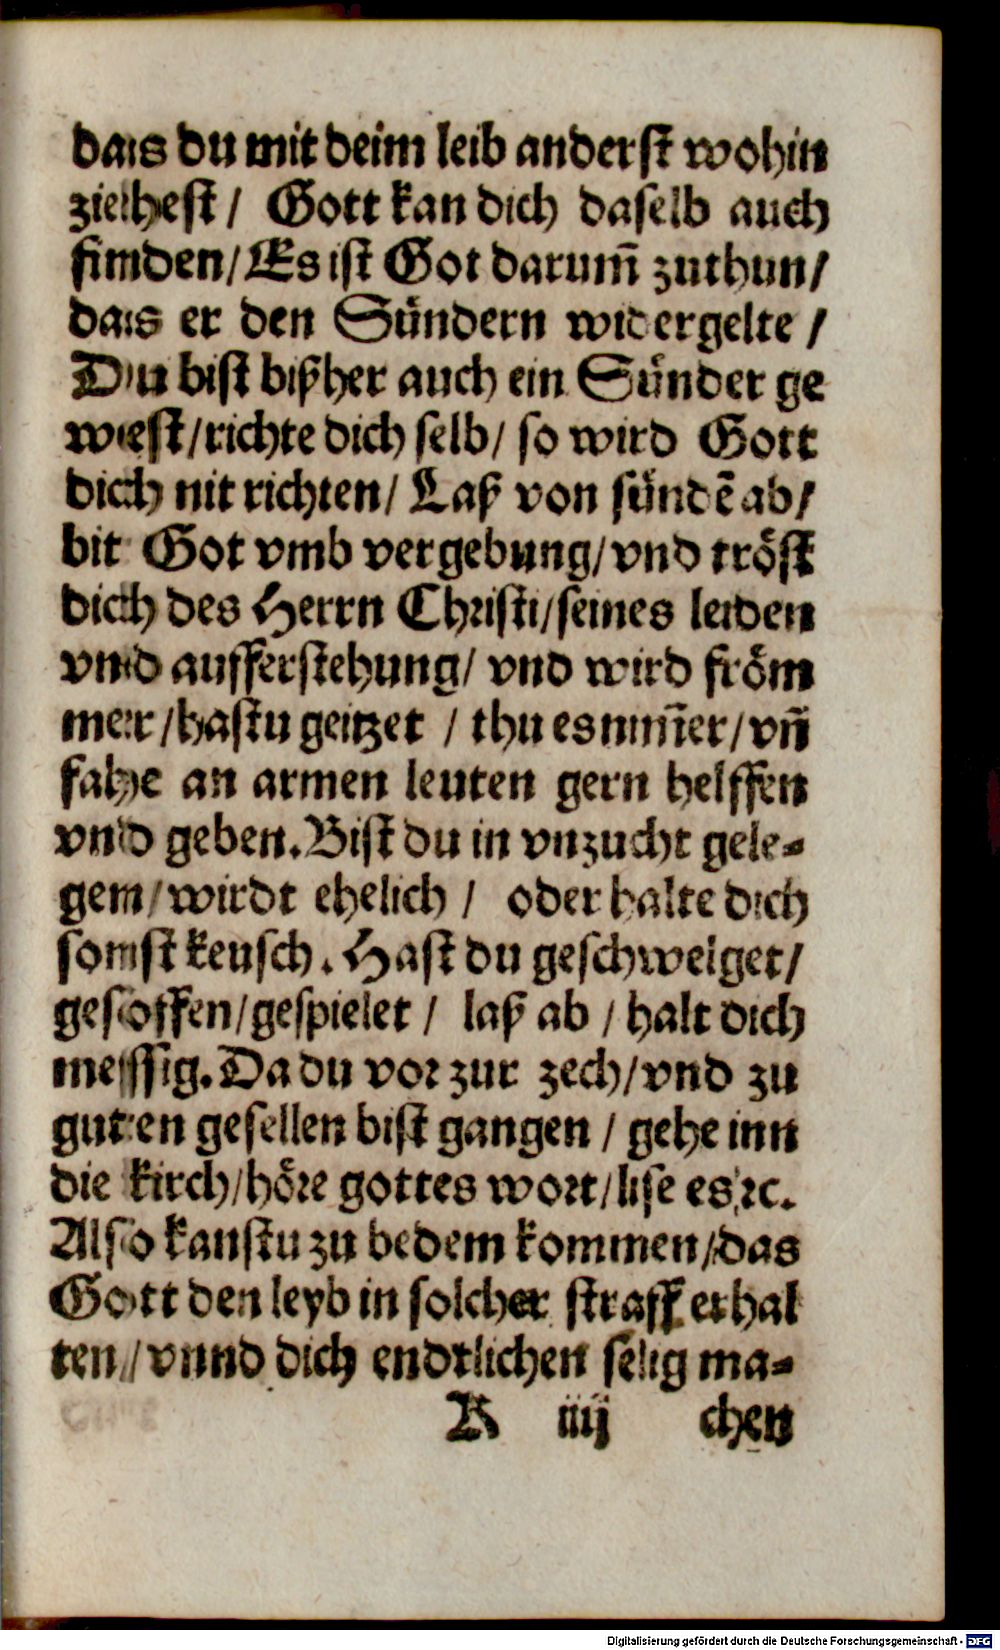 das du mit deim leib anderst wohin
ziehest / Gott kan dich daselb auch
finden / Es ist Got darum̃ zuthun /
das er den Sündern widergelte /
Du bist bißher auch ein Sünder ge
west / richte dich selb / so wird Gott
dich nit richten / Laß von sündē ab /
bit Got vmb vergebung / vnd tröst
dich des Herrn Christi / seines leiden
vnd aufferstehung / vnd wird fröm
mer / hastu geitzet / thu es nim̃er / vñ
fahe an armen leuten gern helffen
vnd geben. Bist du in vnzucht gele-
gen / wirdt ehelich / oder halte dich
sonst keusch. Hast du geschwelget /
gesoffen / gespielet / laß ab / halt dich
messig. Da du vor zur zech / vnd zu
guten gesellen bist gangen / gehe inn
die kirch / höre gottes wort / lise es ꝛc.
Also kanstu zu bedem kommen / das
Gott den leyb in solcher straff erhal
ten / vnnd dich endtlichen selig ma-
K iiij chen
Digitalisierung gefördert durch die Deutsche Forschungsgemeinschaft - DFG